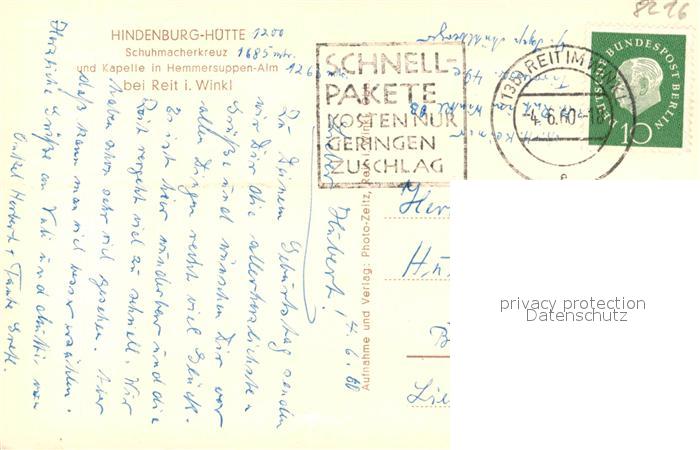 8216
HINDENBURG-HÜTTE 1200
Schuhmacherkreuz 1685 mtr.
und Kapelle in Hemmersuppen-Alm 1266 mtr
bei Reit i. Winkl
SCHNELL-
PAKETE
KOSTEN NUR
GERINGEN
ZUSCHLAG
(13b) REIT IM WINKL
-4.6.60-18
e
DEUTSCHE BUNDESPOST BERLIN
10
Lieber Hubert! 4.6.60
Zu Deinem Geburtstag senden
wir Dir die allerherzlichsten
Grüße und wünschen Dir vor
allen Dingen recht viel Glück.
Es ist hier wunderbar und die
Zeit vergeht viel zu schnell. Wir
haben schon sehr viel gesehen. Aber
das kann man viel besser erzählen.
Herzliche Grüße an Vati und Mutti von
Onkel Herbert + Tante Grete.
Aufnahme und Verlag: Photo-Zeitz, Reit i. Winkl
Her
privacy protection
Datenschutz